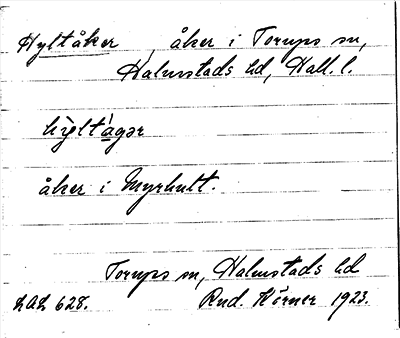 Hyltåker, åker i Torups sn,
Halmstads hd, Hall. l.
hỳltágər
åker i Myrhult.
Torups sn, Halmstads hd
LAL 628. Rud. Körner 1923.